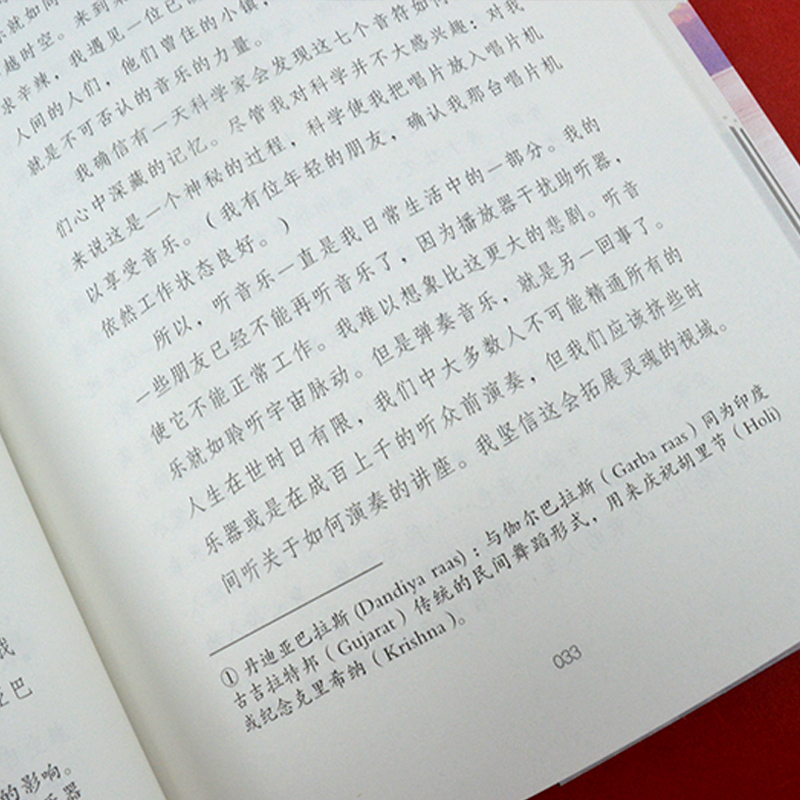 就如何
越时空。来到某
求辛辣，我遇见一位已
人间的人们，他们曾住的小镇，
就是不可否认的音乐的力量。
我确信有一天科学家会发现这七个音符如何
们心中深藏的记忆。尽管我对科学并不大感兴趣：对我
来说这是一个神秘的过程，科学使我把唱片放入唱片机
以享受音乐。（我有位年轻的朋友，确认我那台唱片机
依然工作状态良好。）
所以，听音乐一直是我日常生活中的一部分。我的
一些朋友已经不能再听音乐了，因为播放器干扰助听器，
使它不能正常工作。我难以想象比这更大的悲剧。听音
乐就如聆听宇宙脉动。但是弹奏音乐，就是另一回事了。
人生在世时日有限，我们中大多数人不可能精通所有的
乐器或是在成百上千的听众前演奏，但我们应该挤些时
间听关于如何演奏的讲座。我坚信这会拓展灵魂的视域。
① 丹迪亚巴拉斯 (Dandiya raas)：与伽尔巴拉斯（Garba raas）同为印度
古吉拉特邦（Gujarat）传统的民间舞蹈形式，用来庆祝胡里节（Holi)
或纪念克里希纳（Krishna）。
033
我
巴
的影响。
器